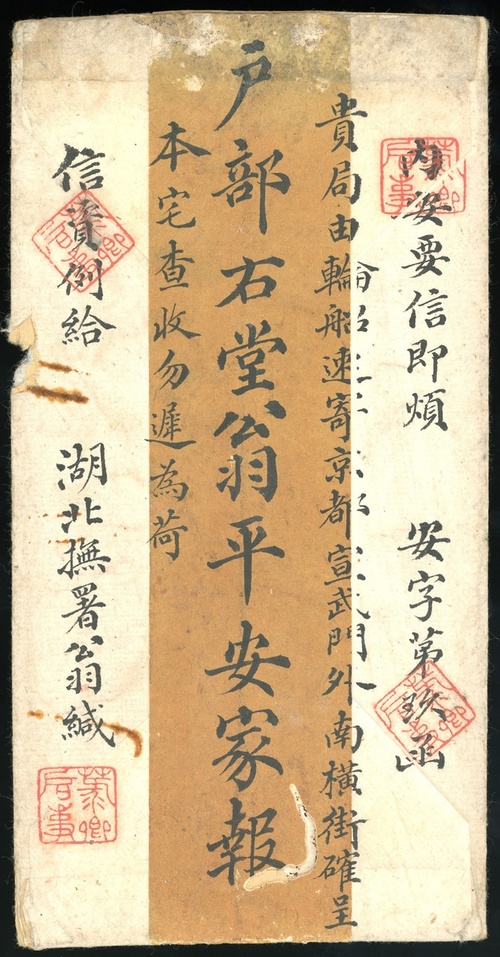 内安要信即煩 安字第玖函
貴局由輪船速寄京都宣武門外南橫街確呈
户部右堂翁平安家報
本宅查收勿遲為荷
信資例給 湖北撫署翁緘